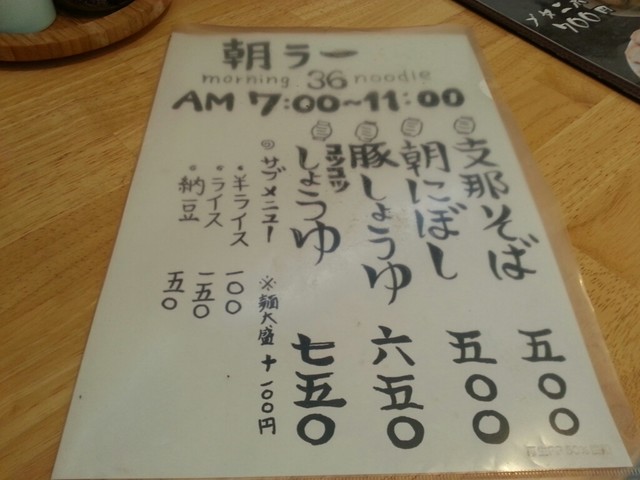 朝ラー
morning 36 noodle
AM 7:00~11:00
㊂ 支那そば 五〇〇
㊂ 朝にぼし 五〇〇
㊂ 豚しょうゆ 六五〇
㊂ コッコッしょうゆ 七五〇
◎サブメニュー ※麺大盛 +一〇〇円
・半ライス 一〇〇
・ライス 一五〇
・納豆 五〇
700円